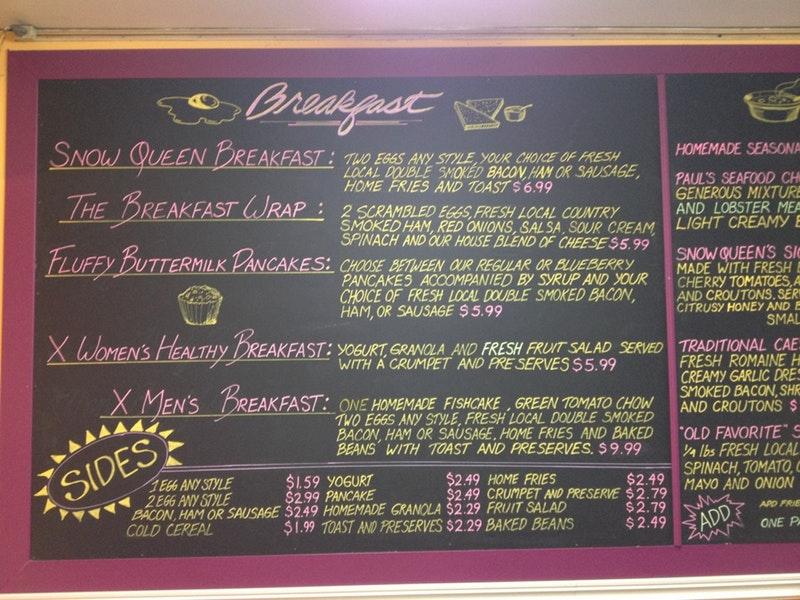 Breakfast
SNOW QUEEN BREAKFAST: TWO EGGS ANY STYLE, YOUR CHOICE OF FRESH
LOCAL DOUBLE SMOKED BACON, HAM OR SAUSAGE,
HOME FRIES AND TOAST $6.99
THE BREAKFAST WRAP: 2 SCRAMBLED EGGS, FRESH LOCAL COUNTRY
SMOKED HAM, RED ONIONS, SALSA, SOUR CREAM,
SPINACH AND OUR HOUSE BLEND OF CHEESE $5.99
FLUFFY BUTTERMILK PANCAKES: CHOOSE BETWEEN OUR REGULAR OR BLUEBERRY
PANCAKES ACCOMPANIED BY SYRUP AND YOUR
CHOICE OF FRESH LOCAL DOUBLE SMOKED BACON,
HAM, OR SAUSAGE $5.99
X WOMEN'S HEALTHY BREAKFAST: YOGURT, GRANOLA AND FRESH FRUIT SALAD SERVED
WITH A CRUMPET AND PRESERVES $5.99
X MEN'S BREAKFAST: ONE HOMEMADE FISHCAKE, GREEN TOMATO CHOW
TWO EGGS ANY STYLE, FRESH LOCAL DOUBLE SMOKED
BACON, HAM OR SAUSAGE, HOME FRIES AND BAKED
BEANS WITH TOAST AND PRESERVES. $9.99
SIDES
1 EGG ANY STYLE $1.59 YOGURT $2.49 HOME FRIES $2.49
2 EGG ANY STYLE $2.99 PANCAKE $2.49 CRUMPET AND PRESERVE $2.79
BACON, HAM OR SAUSAGE $2.49 HOMEMADE GRANOLA $2.29 FRUIT SALAD $2.79
COLD CEREAL $1.99 TOAST AND PRESERVES $2.29 BAKED BEANS $2.49
HOMEMADE
PAUL'S SEAFOOD
GENEROUS MIXTURE
AND LOBSTER
LIGHT CREAMY
SNOW QUEEN'S
MADE WITH FRESH
CHERRY TOMATOES,
AND CROUTONS.
CITRUSY HONEY AND
TRADITIONAL
FRESH ROMAINE
CREAMY GARLIC
SMOKED BACON,
AND CROUTONS $
"OLD FAVORITE"
1/4 lbs FRESH LOCAL
SPINACH, TOMATO,
MAYO AND ONION
ADD
ADD
ONE